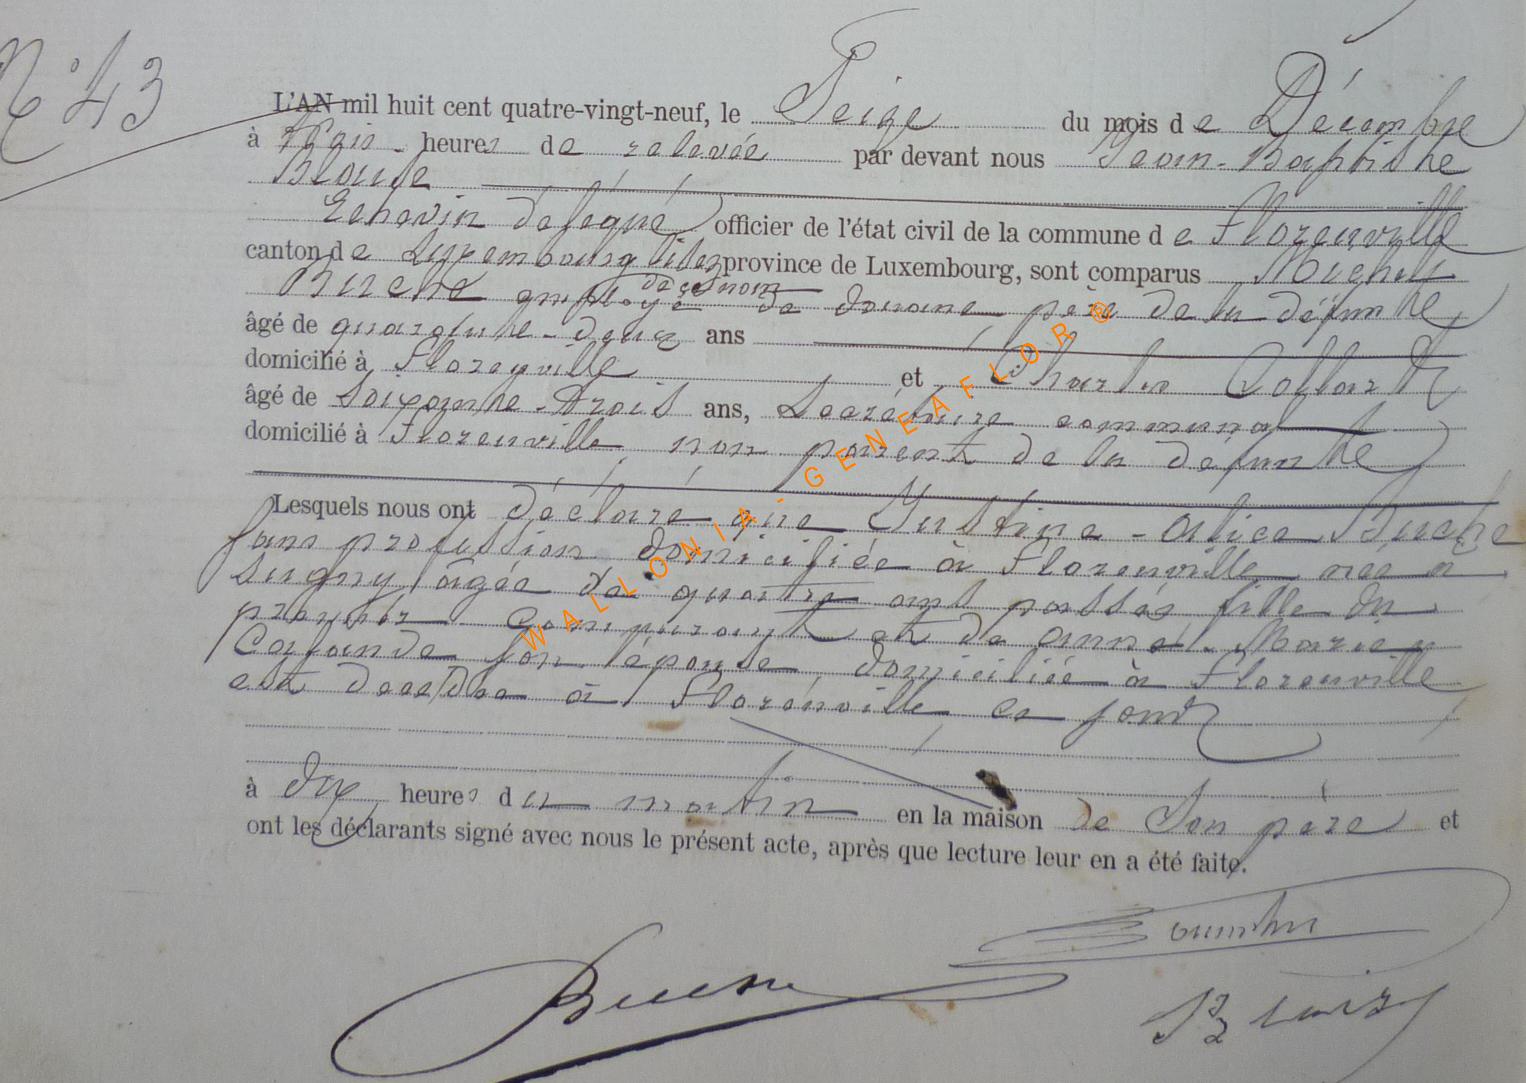 N° 43
L'AN mil huit cent quatre-vingt-neuf, le Seize du mois de Décembre
à trois heures de relevée par devant nous Jean-Baptiste
Echevin délégué officier de l'état civil de la commune de Florenville
canton de province de Luxembourg, sont comparus Michel
Buche employé de douane père de la défunte
âgé de quarante-deux ans
domicilié à Florenville et Charles Collard
âgé de Soixante-trois ans, Secrétaire communal
domicilié à Florenville, non parent de la défunte
Lesquels nous ont déclaré que Justine-Alice Buche
sans profession domiciliée à Florenville née à
Sugny, âgée de quatre ans passés fille du
premier comparant et de Anne-Marie
son épouse, domiciliée à Florenville
est décédée à Florenville ce jour
à dix heures du matin en la maison de Son père et
ont les déclarants signé avec nous le présent acte, après que lecture leur en a été faite.
WALLONIA-GENEAFLOR ®